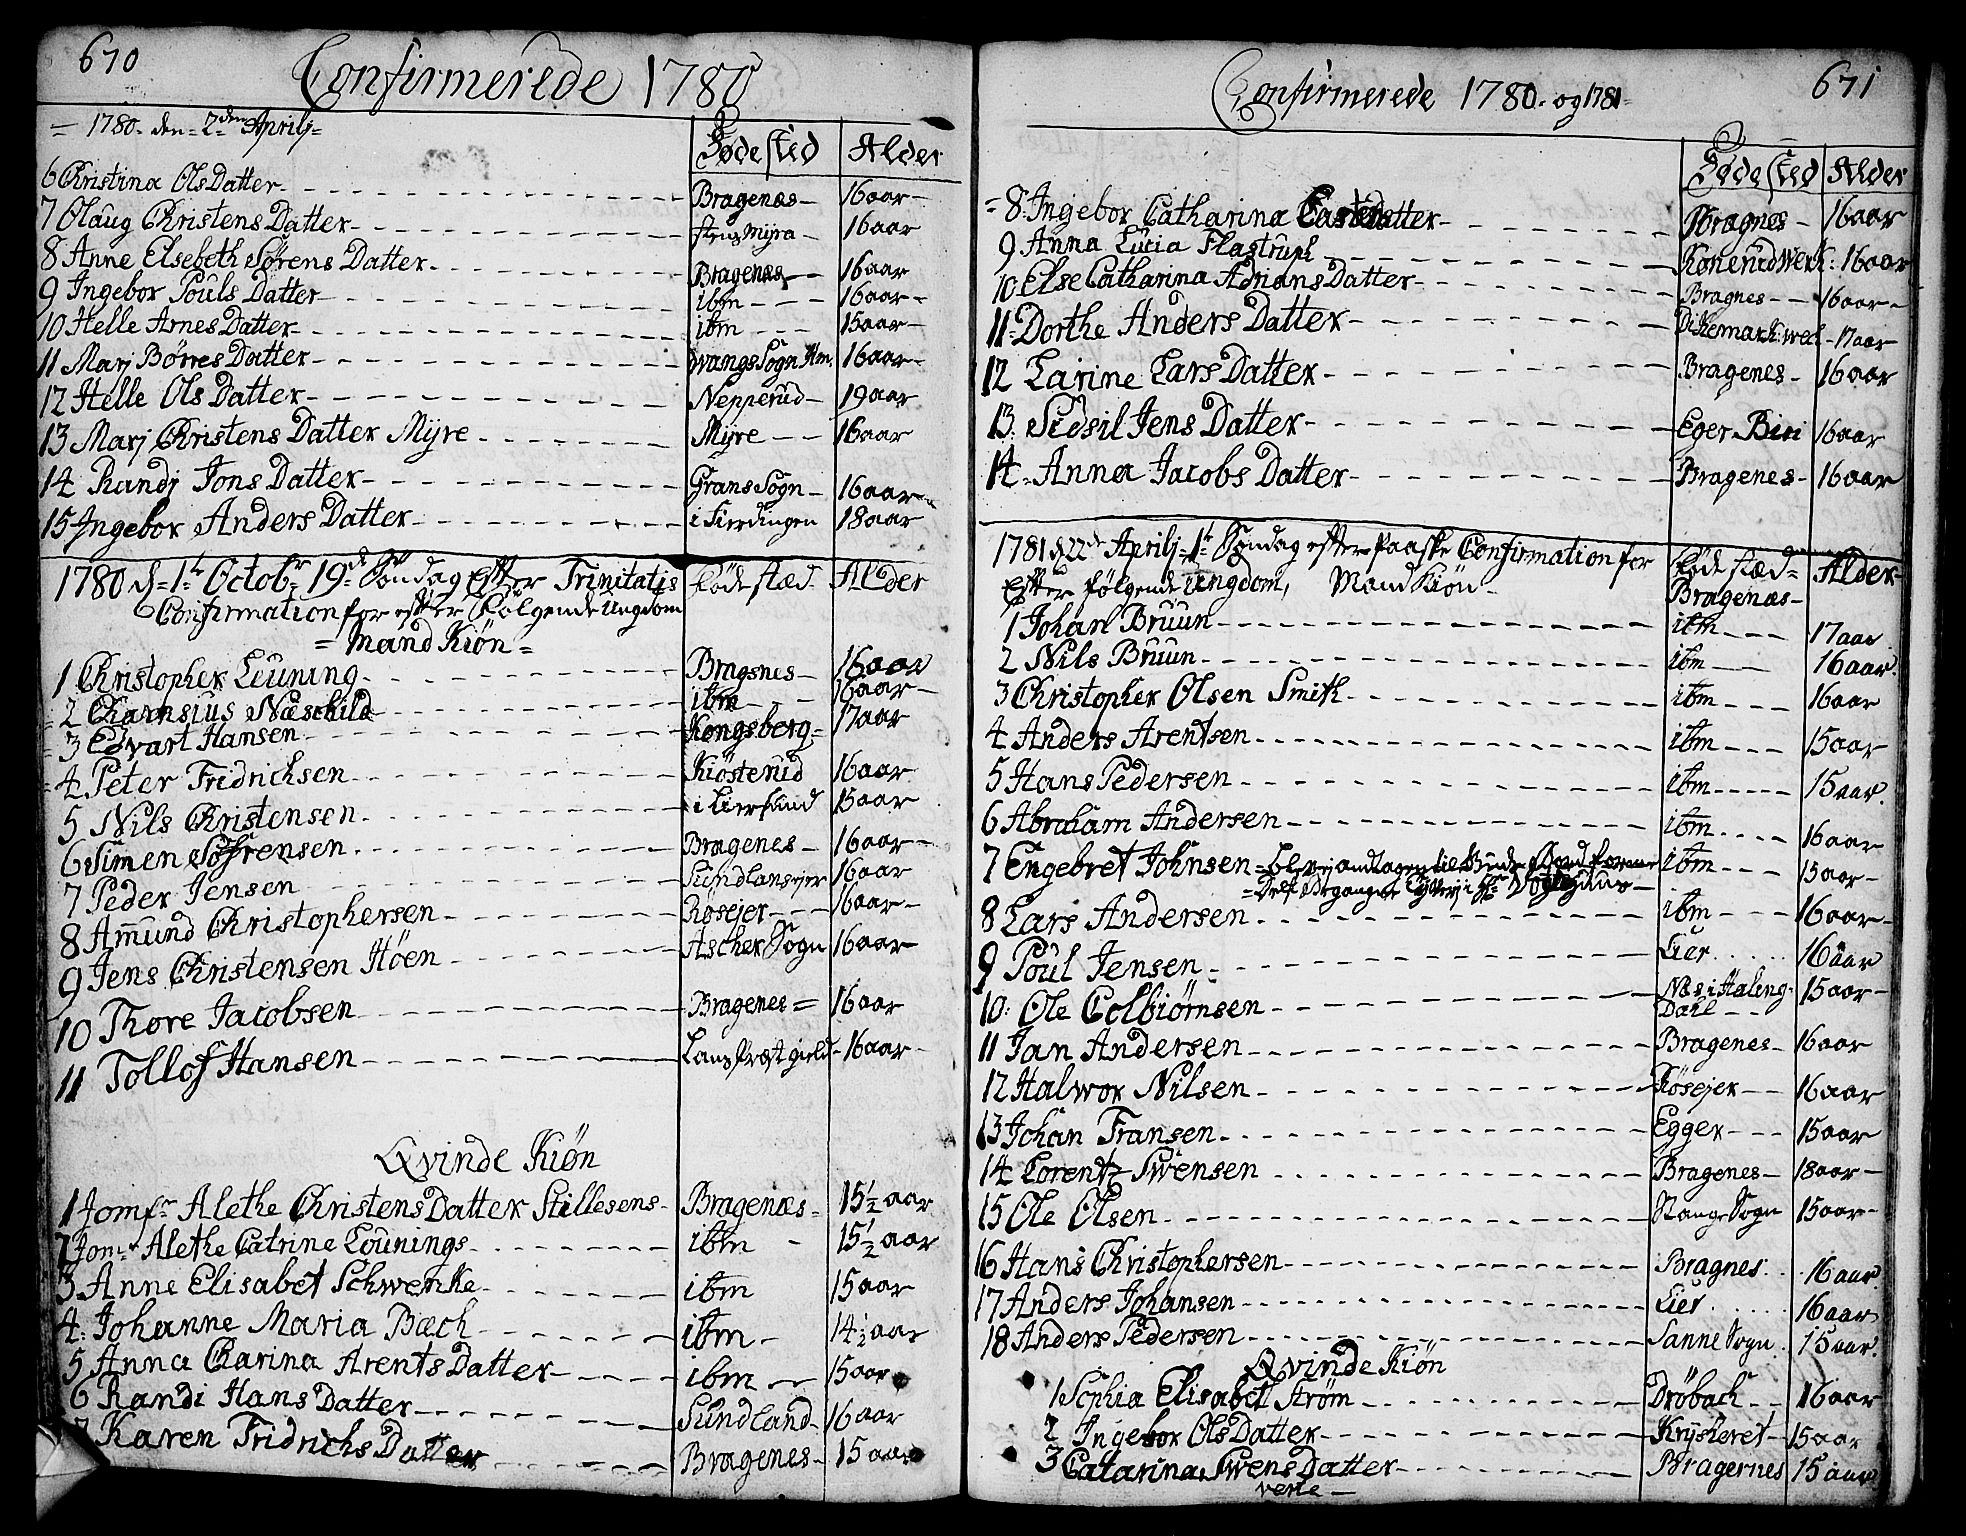 670
Confirmerede 1780
= 1780 den 2den Aprilj =
Fødested Alder
6 Christina OlsDatter Bragenæs 16 aar
7 Olaug Christens Datter stens Myra 16 aar
8 Anne Elsebeth Sørens Datter Bragenæs 16 aar
9 Ingebor Pouls Datter ibm 16 aar
10 Helle Arnes Datter ibm 15 aar
11 Marj Børres Datter 16 aar
12 Helle Ols Datter Nepperud 19 aar
13 Marj Christens Datter Myre Myre 16 aar
14 Randj Jons Datter Grans Sogn 16 aar
15 Ingebor Anders Datter i Fierdingen 18 aar
1780 d 1te Octobr 19d Søndag Efter Trinitatis fødestæd Alder
Confirmation for efter Følgende Ungdom
= Mand Kiøn =
1 Christopher Leuning Bragsnes 16 aar
2 Næschild ibm 16 aar
3 Edvart Hansen Kongsberg 17 aar
4 Peter Fridrichsen Kiøsterud 16 aar
5 Nils Christensen i Lierstrand 15 aar
6 Simen Søfrensen Bragenes 16 aar
7 Peder Jensen 16 aar
8 Amund Christophersen Røsejer 16 aar
9 Jens Christensen Høen Ascher Sogn 16 aar
10 Thore Jacobsen Bragenes 16 aar
11 Tollof Hansen 16 aar
Qvinde Kiøn
1 Jomfr Alethe Christens Datter Stillesens Bragenæs 15½ aar
Jomr Alethe Catrine Lounings ibm 15½ aar
3 Anne Elisabet Schwenke ibm 15 aar
4 Johanne Maria Bæch ibm 14½ aar
5 Anna Carina Arents Datter ibm 15 aar
6 Randi Hans Datter Sundland 16 aar
7 Karen Fridrichs Datter Bragenes 15 aar
671
Confirmerede 1780 og 1781
Fødested Alder
8 Ingebor Catharina Bragnes 16 aar
9 Anna Lucia Flagstruph Konerudwerk 16 aar
10 Else Catharina Adrians Datter Bragnes 16 aar
11 Dorthe Anders Datter Dikemark werk 17 aar
12 Larine Lars Datter Bragenes 16 aar
13 Sidsil Jens Datter Eger Biri 16 aar
14 Anna Jacobs Datter Bragenes 16 aar
1781 d 22de Aprilj 1te Søndag efter Paaske Confirmation for fødestæd Alder
Efter følgende Ungdom, Mand Kiøn Bragenæs
1 Johan Bruun ibm 17 aar
2 Nils Bruun ibm 16 aar
3 Christopher Olsen Smith ibm 16 aar
4 Anders Arentsen ibm 15 aar
5 Hans Pedersen ibm 15 aar
6 Abraham Andersen ibm 16 aar
7 Engebret Johnsen ibm 15 aar
8 Lars Andersen ibm 16 aar
9 Poul Jensen Lier 16 aar
10 Ole Colbiørnsen Næs i Haling Dahl 15 aar
11 Jan Andersen Bragenes 16 aar
12 Halwor Nilsen Røsejer 16 aar
13 Johan Fransen Egger 15 aar
14 Lorentz Swensen Bragenes 18 aar
15 Ole Olsen Stange Sogn 15 aar
16 Hans Christophersen Bragnes 16 aar
17 Anders Johansen Lier 16 aar
18 Anders Pedersen Sanne Sogn 15 aar
Qvinde Kiøn
1 Sophia Elisabet Strøm Drøbach 16 aar
2 Ingebor Ols Datter 15 aar
3 Catarina Swens Datter Bragernes 15 aar